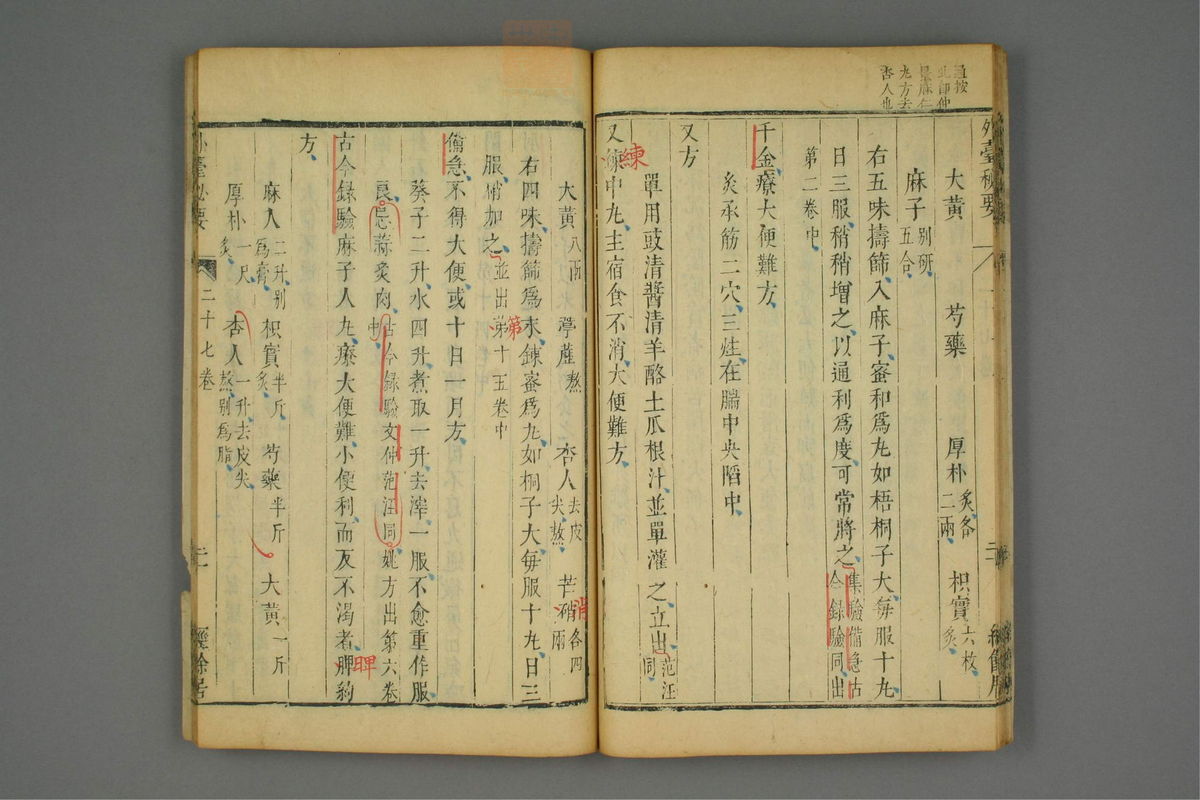 道按
此即仲
景麻仁
丸方去
杏人也
外臺秘要
大黃 芍藥 厚朴炙各二兩 枳實六枚炙
麻子別研五合
右五味擣篩入麻子蜜和為丸如梧桐子大每服十丸
日三服稍稍增之以通利為度可常將之集驗備急古今錄驗同出
第二卷中
千金療大便難方
灸承筋二穴三炷在腨中央陷中
又方
單用豉清醬清羊酪土瓜根汁並單灌之立出范汪同
又練中丸主宿食不消大便難方
練
大黃八兩 葶藶熬 杏人去皮尖熬 芒硝各四兩
消
右四味擣篩為末鍊蜜為丸如桐子大每服十丸日三
服稍加之並出第十五卷中
第
備急不得大便或十日一月方
葵子二升水四升煮取一升去滓一服不愈重作服
良忌蒜炙肉古今錄驗文仲范汪同姚方出第六卷中
古今錄驗麻子人丸療大便難小便利而反不渴者脾約
脾
方
麻人二升別為膏 枳實半斤炙 芍藥半斤 大黃一斤
厚朴一尺炙 杏人一升去皮尖熬別為脂
外臺秘要 二十七卷 經餘居